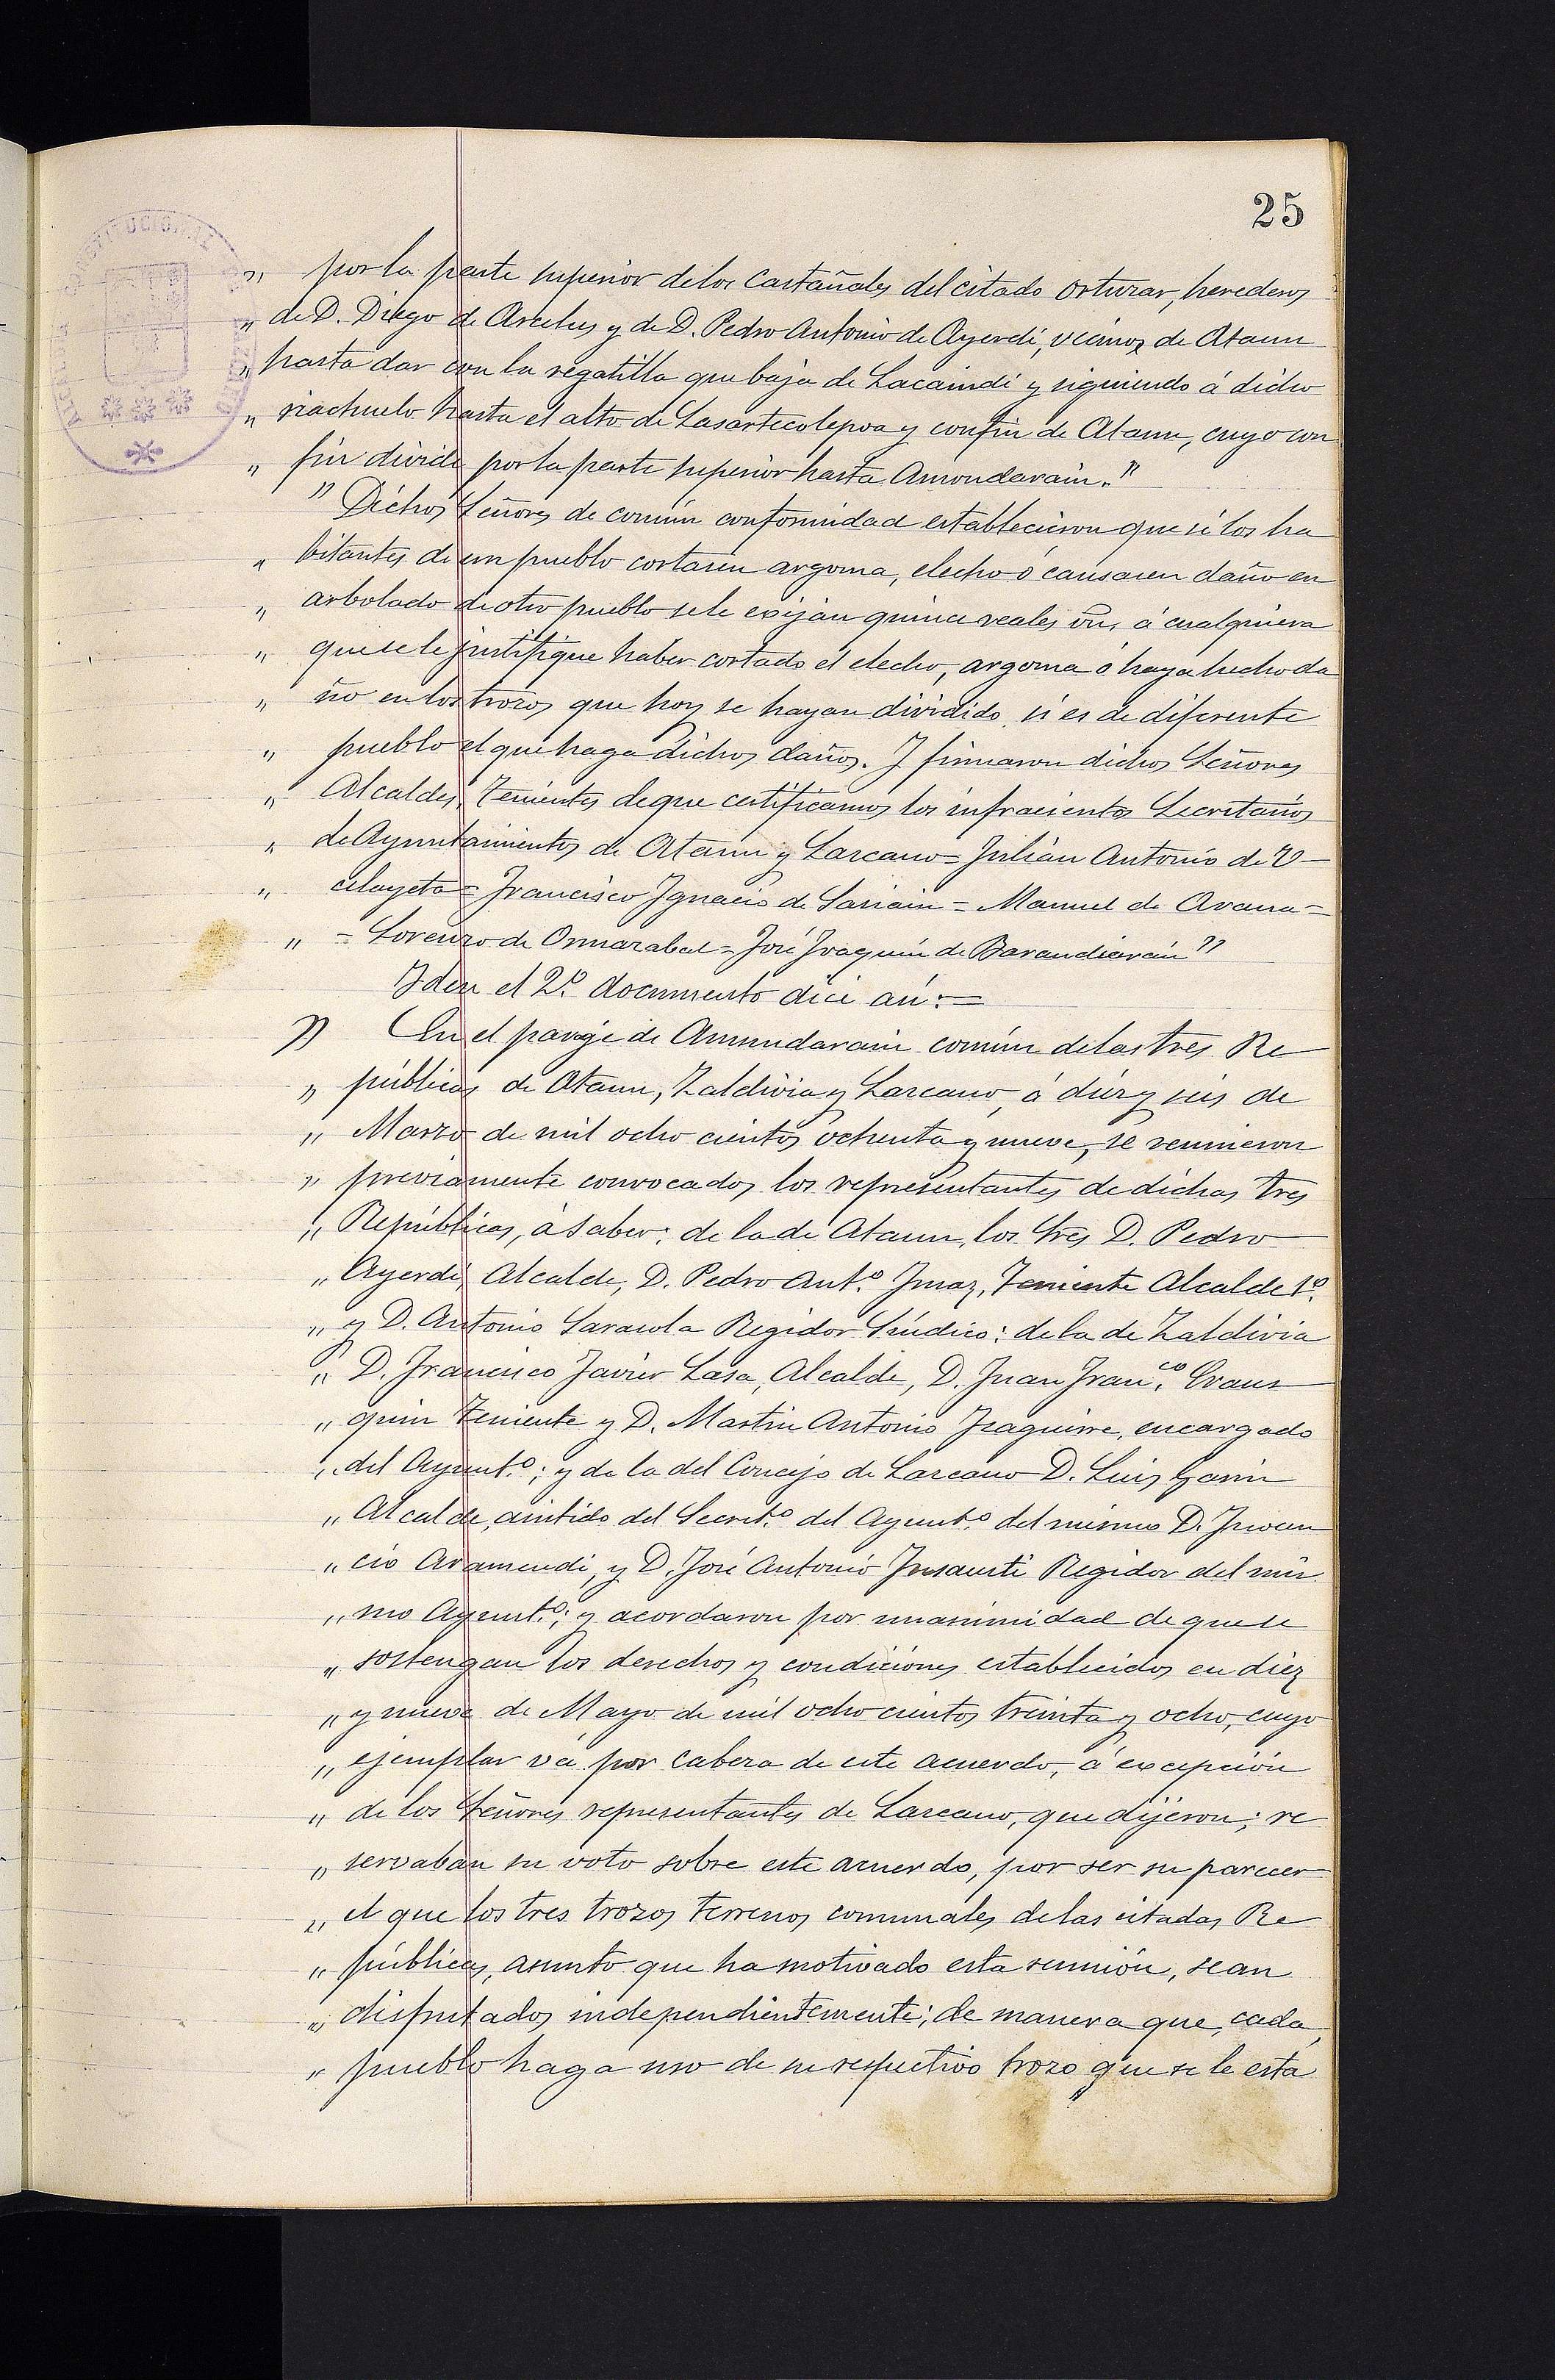 25
„ por la parte superior de los Castañales del citado Orturar, herederos
„ de D. Diego de Arcelus y de D. Pedro Antonio de Ayerdi, vecinos de Ataun
„ hasta dar con la regatilla que baja de Lacaindi y siguiendo á dicho
„ riachuelo hasta el alto de Lasartecolepoa y confin de Ataun, cuyo con
„ fin divide por la parte superior hasta Amondarain."
" Dichos Señores de común conformidad establecieron que si los ha
„ bitantes de un pueblo cortaren argoma, elecho ó causaren daño en
„ arbolado de otro pueblo se le exijan quince reales vn, á cualquiera
„ que se le justifique haber cortado el elecho, argoma ó haya hecho da
„ ño en los trozos que hoy se hayan dividido, si es de diferente
„ pueblo el que haga dichos daños. Y firmaron dichos Señores
„ Alcaldes, Tenientes de que certificamos los infraescritos Secretarios
„ de Ayuntamientos de Ataun y Lazcano = Julián Antonio de U-
„ celayeta = Francisco Ignacio de Sariain = Manuel de Arana =
„ = Lorenzo de Ormazabal = José Joaquín de Barandiarán"
Y den el 2º documento dice así: =
" En el parage de Amundarain común de las tres Re
„ públicas de Ataun, Zaldivia y Lazcano, á diez y seis de
„ Marzo de mil ocho cientos ochenta y nueve, se reunieron
„ previamente convocados los representantes de dichas tres
„ Repúblicas, á saber: de la de Ataun, los tres D. Pedro
„ Ayerdi, Alcalde, D. Pedro Ant.º Imaz, Teniente Alcalde 1º.
„ y D. Antonio Sarasola Regidor Síndico: de la de Zaldivia
„ D. Francisco Javier Lasa, Alcalde, D. Juan Fran.co Eraus
„ quin Teniente y D. Martin Antonio Izaguirre, encargado
„ del Ayunt.º; y de la del Concejo de Lazcano D. Luis Garin
„ Alcalde, asistido del Secret.º del Ayunt.º del mismo D. Juven
„ cio Aramendi, y D. José Antonio Insausti Regidor del mis
„ mo Ayunt.º; y acordaron por unanimidad de que se
„ sostengan los derechos y condiciones establecidos en diez
„ y nueve de Mayo de mil ocho cientos treinta y ocho, cuyo
„ ejemplar vá por cabeza de este acuerdo, á excepción
„ de los Señores representantes de Lazcano, que dijeron; re
„ servaban su voto sobre este acuerdo, por ser su parecer
„ el que los tres trozos terrenos comunales de las citadas Re
„ públicas, asunto que ha motivado esta reunión, sean
„ disfrutados independientemente; de manera que, cada
„ pueblo haga uso de su respectivo trozo que se le está